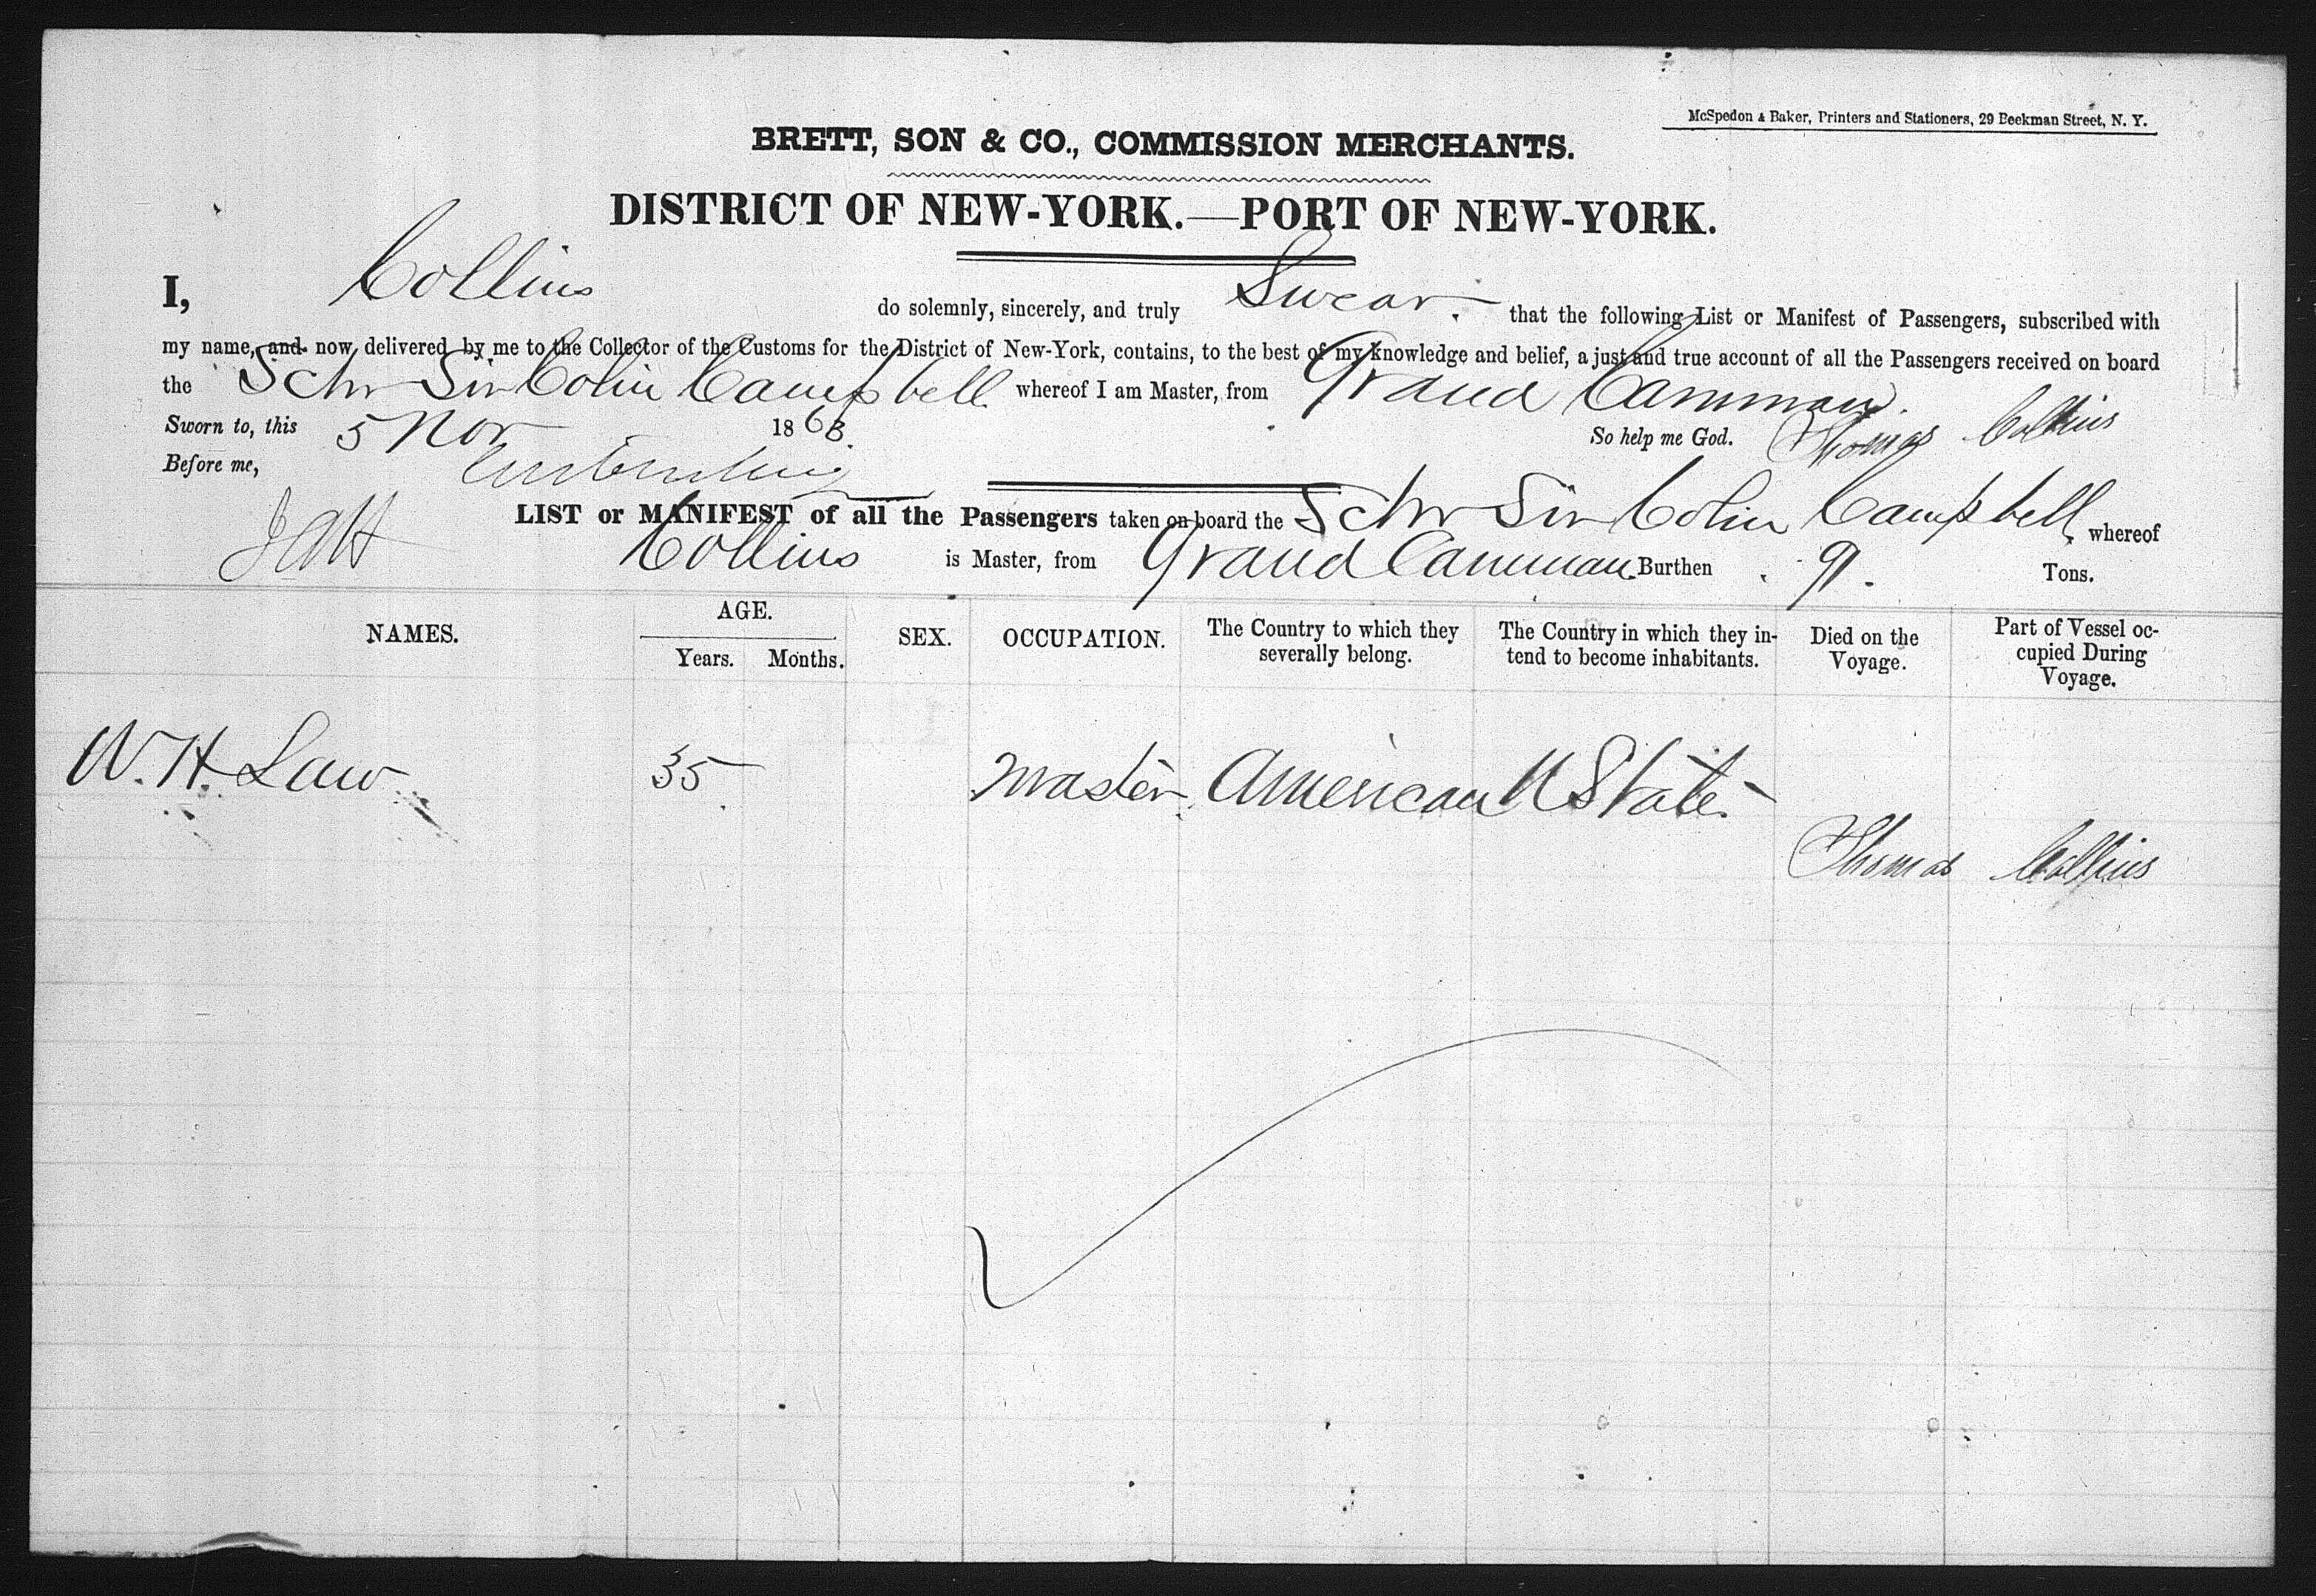 McSpedon & Baker, Printers and Stationers, 29 Beekman Street, N. Y.
BRETT, SON & CO., COMMISSION MERCHANTS.
DISTRICT OF NEW-YORK.—PORT OF NEW-YORK.
I, Collins do solemnly, sincerely, and truly Swear that the following List or Manifest of Passengers, subscribed with
my name, and now delivered by me to the Collector of the Customs for the District of New-York, contains, to the best of my knowledge and belief, a just and true account of all the Passengers received on board
the Schr Sir Colin Campbell whereof I am Master, from Grand Camman.
Sworn to, this 5 Nov 1863. So help me God. Thomas Collins
Before me,
LIST or MANIFEST of all the Passengers taken on board the Schr Sir Colin Campbell whereof
Collins is Master, from Grand Camman Burthen 91. Tons.
NAMES. AGE. Years. Months. SEX. OCCUPATION. The Country to which they severally belong. The Country in which they intend to become inhabitants. Died on the Voyage. Part of Vessel occupied During Voyage.
W. H. Law 35 Master American U States
Thomas Collins